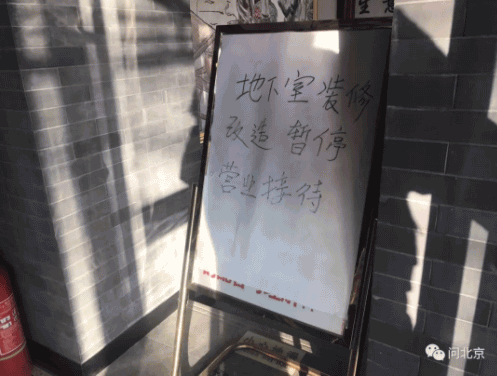 地下室装修
改造 暂停
营业接待
问北京